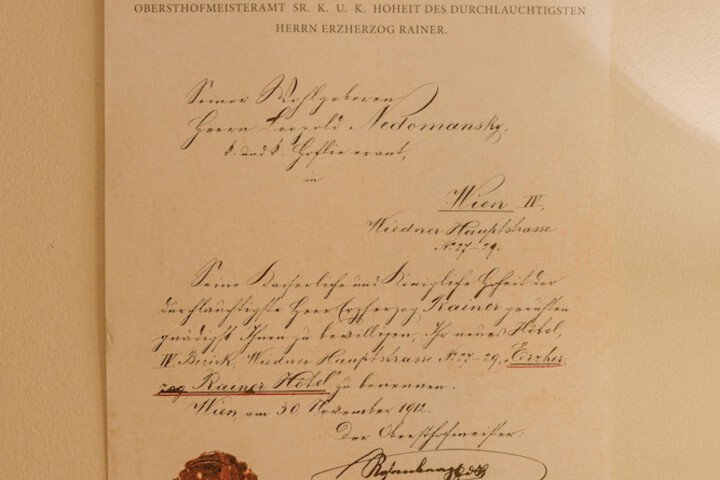 OBERSTHOFMEISTERAMT SR. K. U. K. HOHEIT DES DURCHLAUCHTIGSTEN
HERRN ERZHERZOG RAINER.
Seiner Wohlgeboren
Herrn Leopold Nedomansky,
k. und k. Hoflieferant,
in
Wien IV,
Wiedner Hauptstrasse
No. 27-29.
Seine Kaiserliche und Königliche Hoheit der
durchlauchtigste Herr Erzherzog Rainer geruhten
gnädigst Ihnen zu bewilligen, Ihr neues Hôtel,
IV Bezirk, Wiedner Hauptstrasse No. 27-29, „Erzher
zog Rainer Hôtel" zu benennen.
Wien, am 30. November 1912.
Der Obersthofmeister: